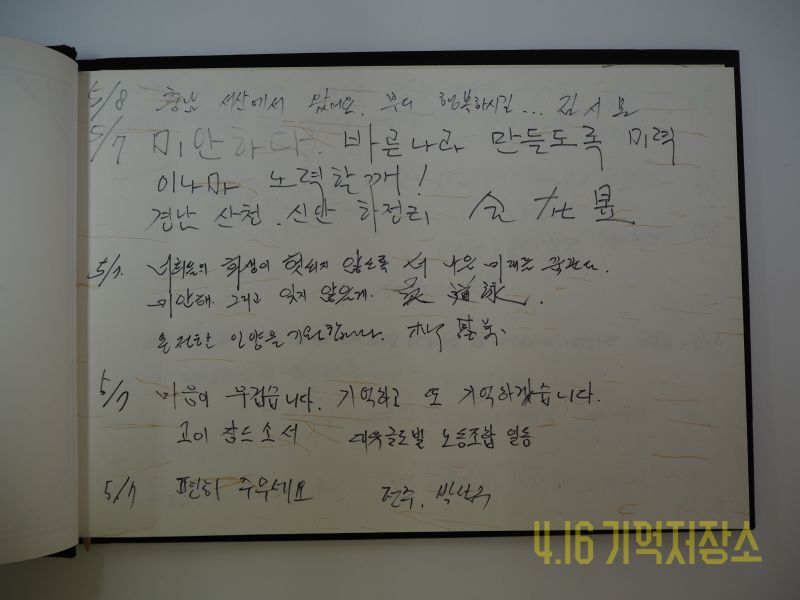 5/8 충남 서산에서 왔네요. 부디 행복하시길... 김시용
5/7 미안하다. 바른나라 만들도록 미력
이나마 노력할께!
경남 산천. 신안 하정리
5/7. 너희들의 희생이 헛되지 않도록 더 나은 미래를
미안해. 그리고 잊지 않을게. 道泳.
온전한 인양을 기원합니다. 朴
5/7 마음이 무겁습니다. 기억하고 또 기억하겠습니다.
고이 잠드소서 대우글로벌 노동조합 일동
5/7 편히 주무세요 전주. 박선주
4.16 기억저장소